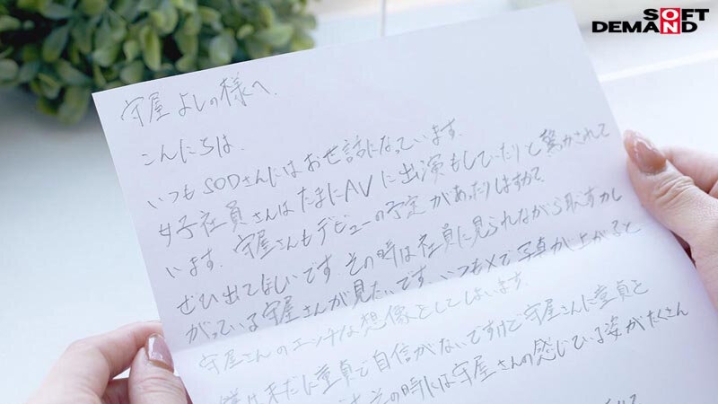 SOFT
DEMAND
守屋よしの様へ
こんにちは。
いつもSODさんにはお世話になっています。
女子社員さんはたまにAVに出演もしていたりと驚かされて
います。守屋さんもデビューの予定があったりしますか?
ぜひ出てほしいです。その時は社員に見られながら恥ずかし
がっている守屋さんが見たいです。いつもXで写真が上がると
守屋さんのエッチな想像をしてしまいます。
未だに童貞で自信がないですけど守屋さんに童貞を
その時には守屋さんの感じている姿がたくさん